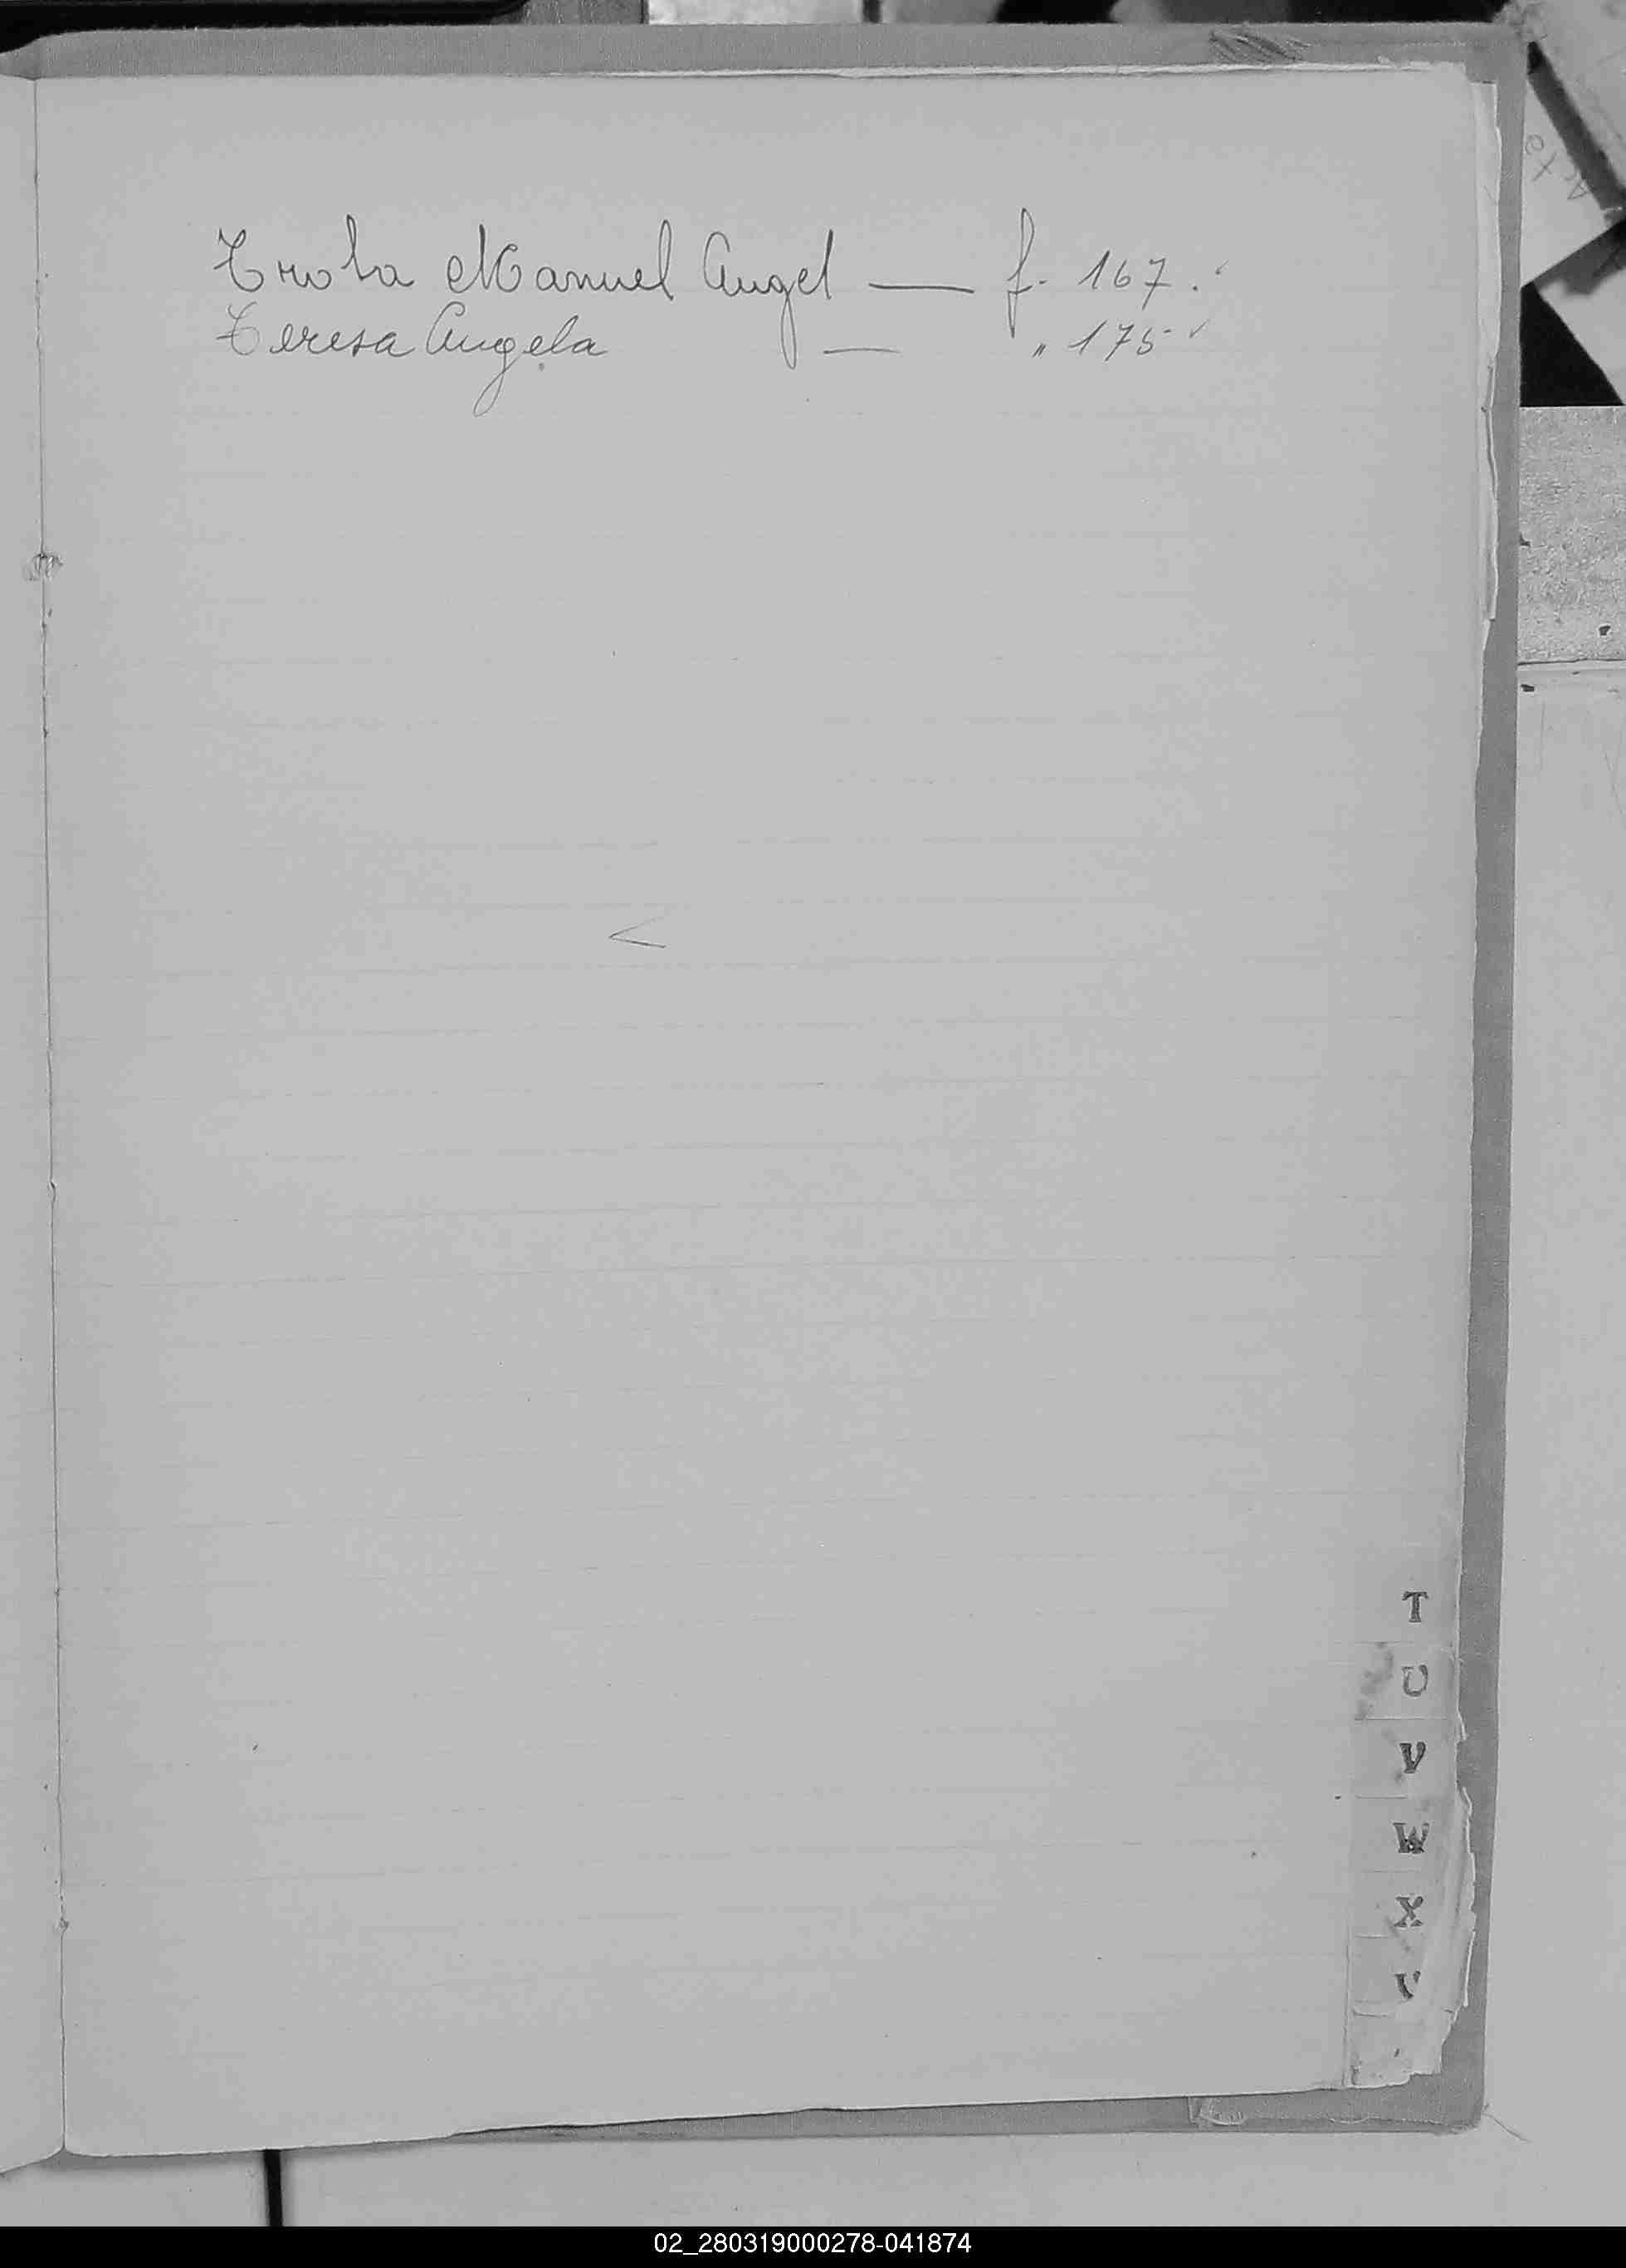 Trota Manuel Angel — f. 167.
Teresa Angela — " 175
T
U
V
W
X
02_280319000278-041874